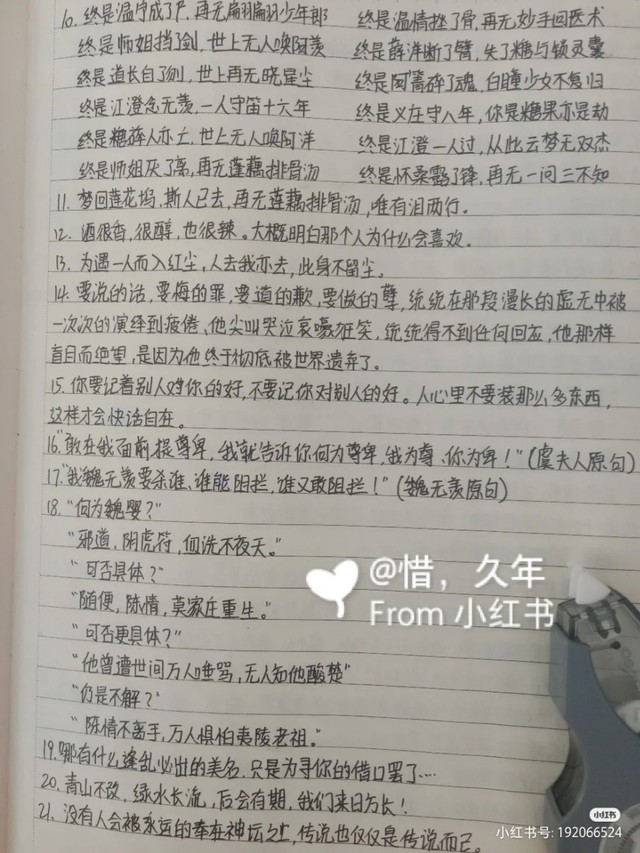 10. 终是温宁成了尸,再无翩翩少年郎 终是温情挫了骨,再无妙手回医术
终是师姐挡了剑,世上无人唤阿羡 终是薛洋断了臂,失了糖与锁灵囊
终是道长自了刎,世上再无晓星尘 终是阿菁碎了魂,白瞳少女不复归
终是江澄念无羡,一人守笛十六年 终是义庄守八年,你是糖果亦是劫
终是糖碎人亦亡,世上无人唤阿洋 终是江澄一人过,从此云梦无双杰
终是师姐厌了离,再无莲藕排骨汤 终是怀桑露了锋,再无一问三不知
11. 梦回莲花坞,斯人已去,再无莲藕排骨汤,唯有泪两行。
12. 酒很香,很醇,也很辣。大概明白那个人为什么会喜欢。
13. 为遇一人而入红尘,人去我亦去,此身不留尘。
14. 要说的话,要悔的罪,要道的歉,要做的孽,统统在那段漫长的虚无中被
一次次的演绎到疲倦、他尖叫哭泣哀嚎狂笑,统统得不到任何回应,他那样
盲目而绝望,是因为他终于彻底被世界遗弃了。
15. 你要记着别人对你的好,不要记你对别人的好。人心里不要装那么多东西,
这样才会快活自在。
16."敢在我面前提尊卑,我就告诉你何为尊卑,我为尊、你为卑!"(虞夫人原句)
17."我魏无羡要杀谁、谁能阻拦,谁又敢阻拦!"(魏无羡原句)
18."何为魏婴?"
"邪道,阴虎符,血洗不夜天。"
"可否具体?"
"随便,陈情,莫家庄重生。"
"可否更具体?"
"他曾遭世间万人唾骂,无人知他酸楚"
"仍是不解?"
"陈情不离手,万人惧怕夷陵老祖。"
19.哪有什么逢乱必出的美名,只是为寻你的借口罢了…
20. 青山不改,绿水长流,后会有期,我们来日方长!
21. 没有人会被永远的奉在神坛之上,传说也仅仅是传说而已。
@惜,久年
From 小红书
小红书
小红书号: 192066524